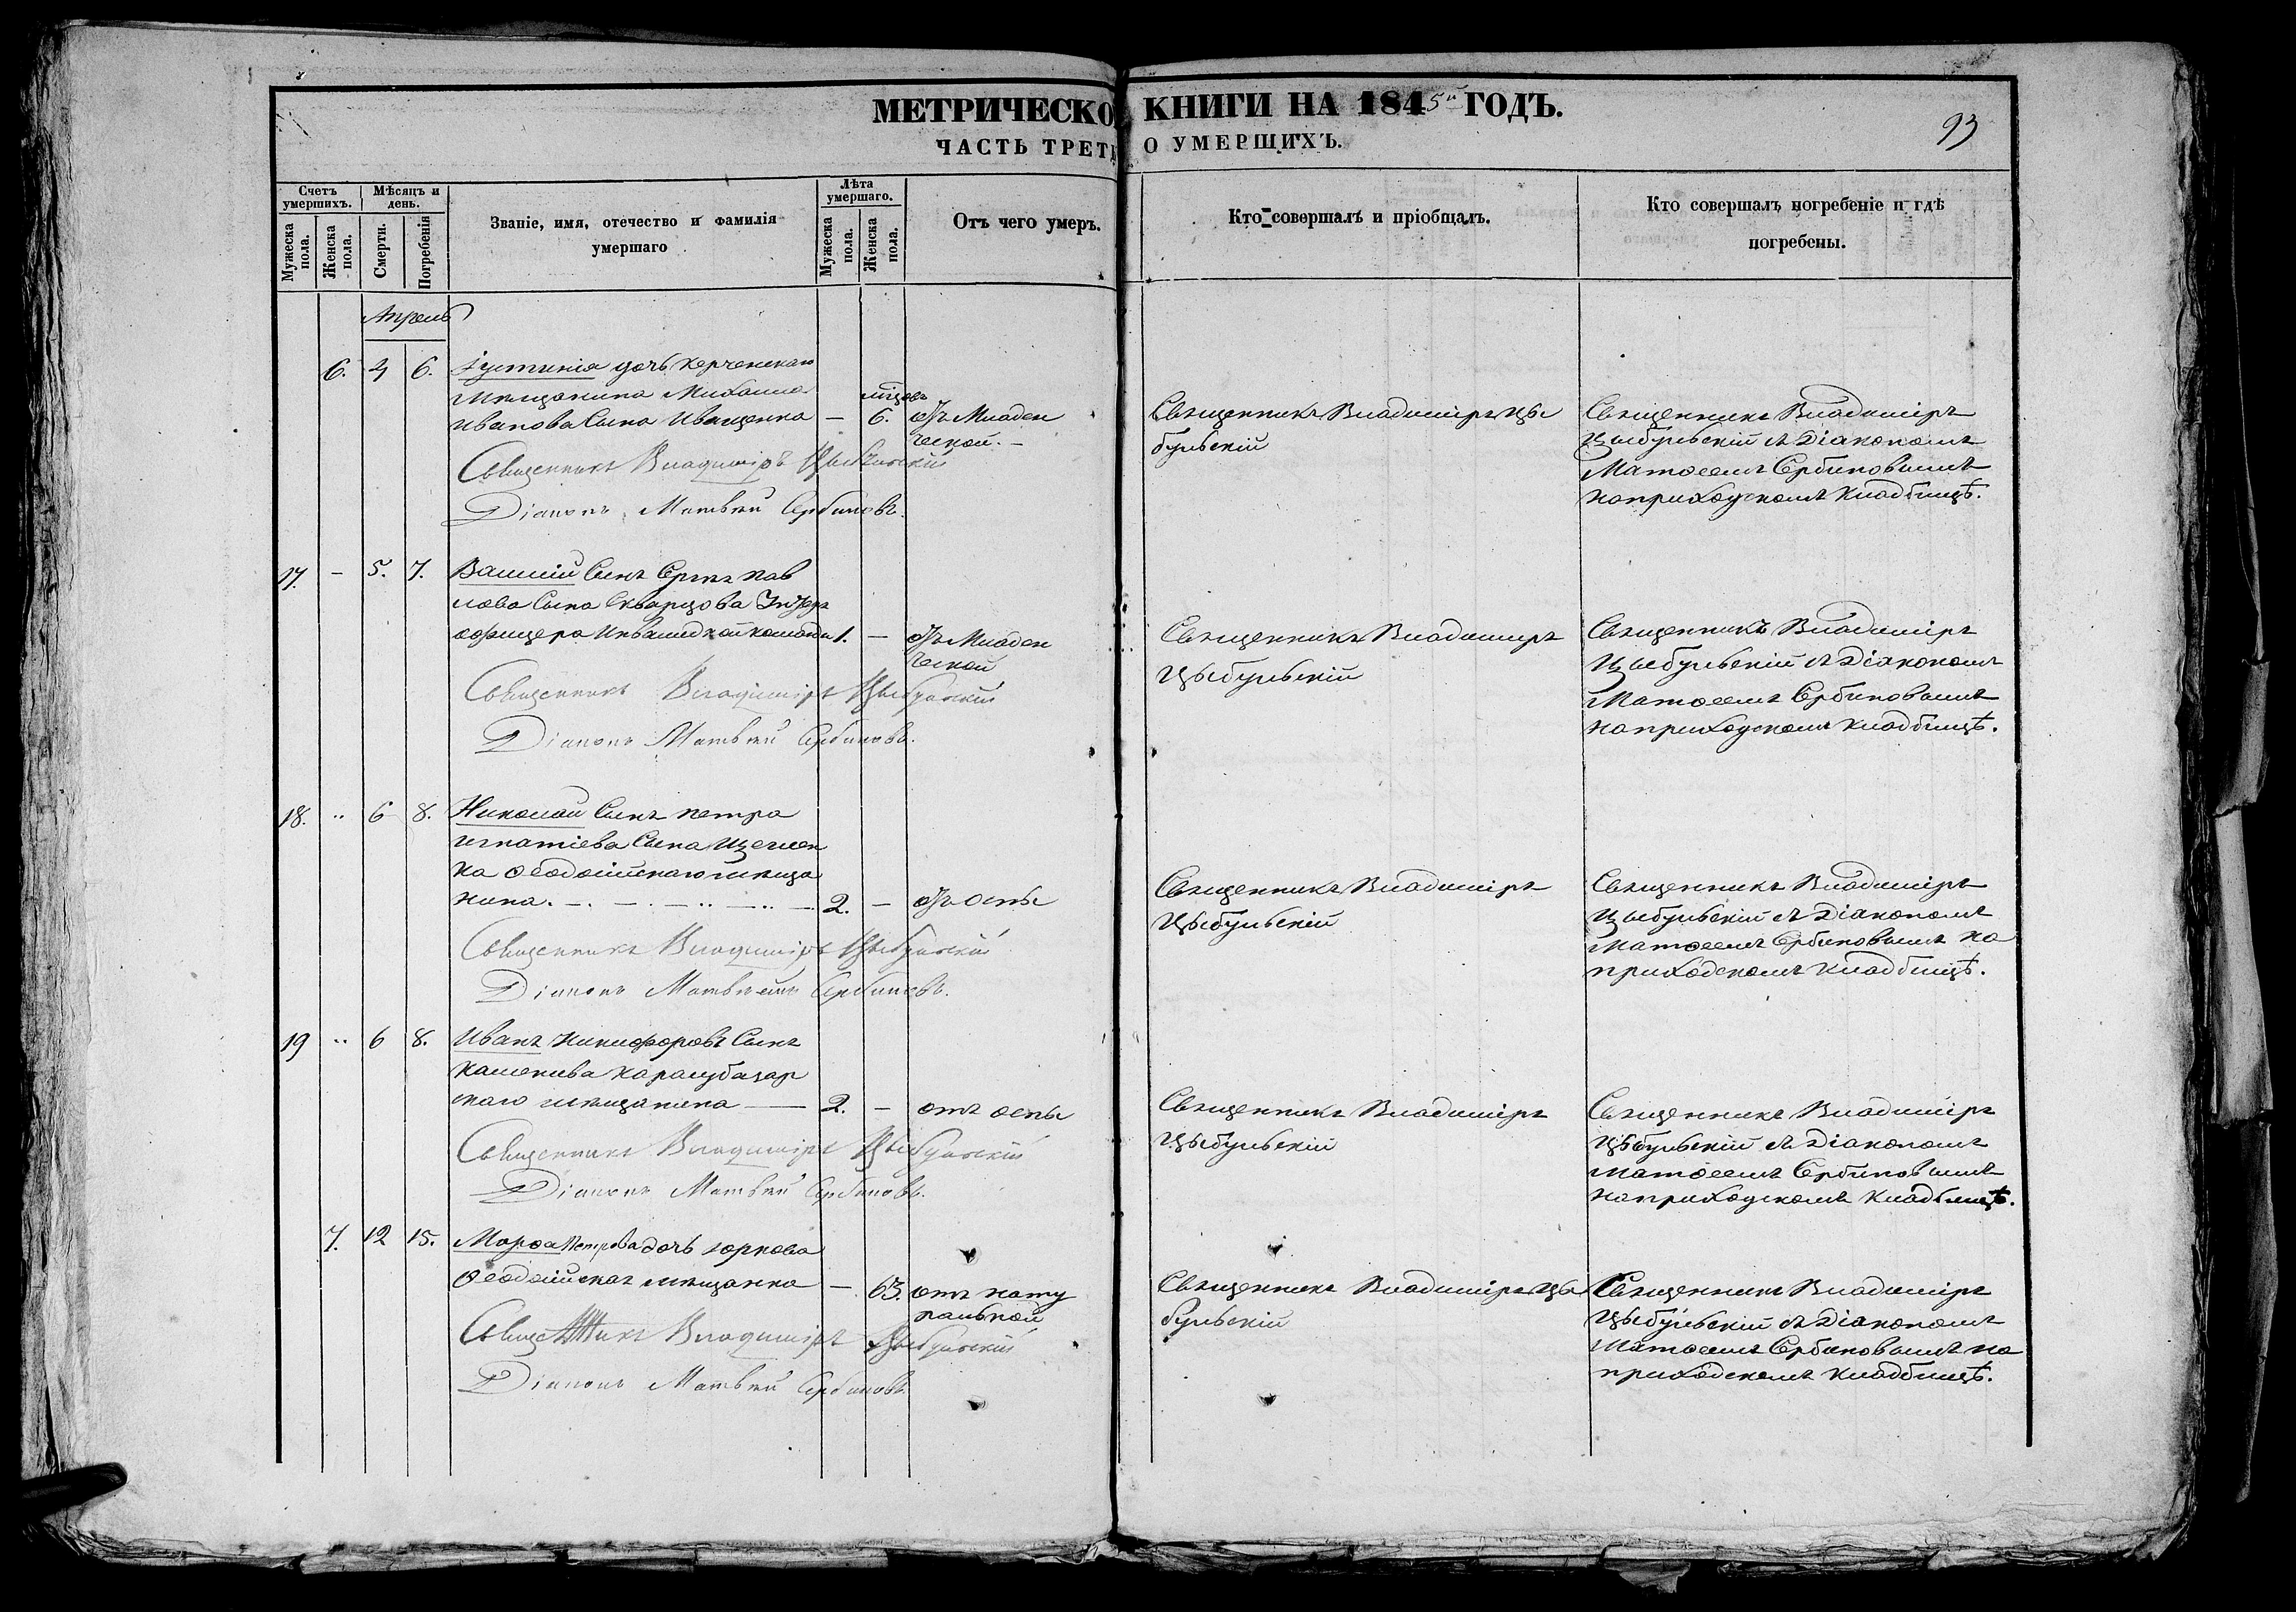 МЕТРИЧЕСКО КНИГИ НА 1845й ГОДЪ.
93
ЧАСТЬ ТРЕТЬ О УМЕРШИХЪ.
Счетъ умершихъ.
Мужеска пола.
Женска пола.
Мѣсяцъ и день.
Смерти.
Погребенія
Званіе, имя, отечество и фамилія умершаго
Лѣта умершаго.
Мужеска пола.
Женска пола.
Отъ чего умеръ.
Кто совершалъ и пріобщалъ.
Кто совершалъ погребеніе и гдѣ погребены.
Апрель
6. 4 6. Іустинія дочь Керченскаго
мѣщанина Михаила
Иванова Сына Иващенка — 6. отъ Младен
ческой. –
Священникъ Владиміръ Цыбульскій
Діаконъ Матвѣй Сербиновъ.
Священникъ Владиміръ Цы
бульскій
Священникъ Владиміръ
Цыбульскій съ Діакономъ
Матөеемъ Сербиновымъ
на приходскомъ кладбищѣ.
17. – 5. 7. Василій Сынъ Сергѣя Пав
лова Сына Скварцова Унтеръ
офицера Инвалидной команды 1. — отъ Младен
ческой
Священникъ Владиміръ Цыбульскій
Діаконъ Матвѣй Сербиновъ.
Священникъ Владимиръ
Цыбульскій
Священникъ Владиміръ
Цыбульскій съ Діакономъ
Матөеемъ Сербиновымъ
на приходскомъ кладбищѣ.
18. " 6 8. Николай Сынъ Петра
Игнатіева Сына Щеглен
ка Өеодосійскаго мѣща
нина. 2. – отъ оспы
Священникъ Владиміръ Цыбульскій
Діаконъ Матвѣй Сербиновъ.
Священникъ Владиміръ
Цыбульскій
Священникъ Владиміръ
Цыбульскій съ Діакономъ
Матөеемъ Сербиновымъ на
приходскомъ кладбищѣ.
19 " 6 8. Иванъ Никифоровъ Сынъ
Карасубазар
скаго мѣщанина — 2. – отъ оспы
Священникъ Владиміръ Цыбульскій
Діаконъ Матвѣй Сербиновъ.
Священникъ Владиміръ
Цыбульскій
Священникъ Владиміръ
Цыбульскій съ Діакономъ
Матөеемъ Сербиновымъ
на приходскомъ кладбищѣ.
7. 12 15. Марөа Петрова дочь
Өеодосійская мѣщанка — 63. отъ нату
ральной
Священникъ Владиміръ Цыбульскій
Діаконъ Матвѣй Сербиновъ
Священникъ Владиміръ Цы
бульскій
Священникъ Владиміръ
Цыбульскій съ Діакономъ
Матөеемъ Сербиновымъ на
приходскомъ кладбищѣ.